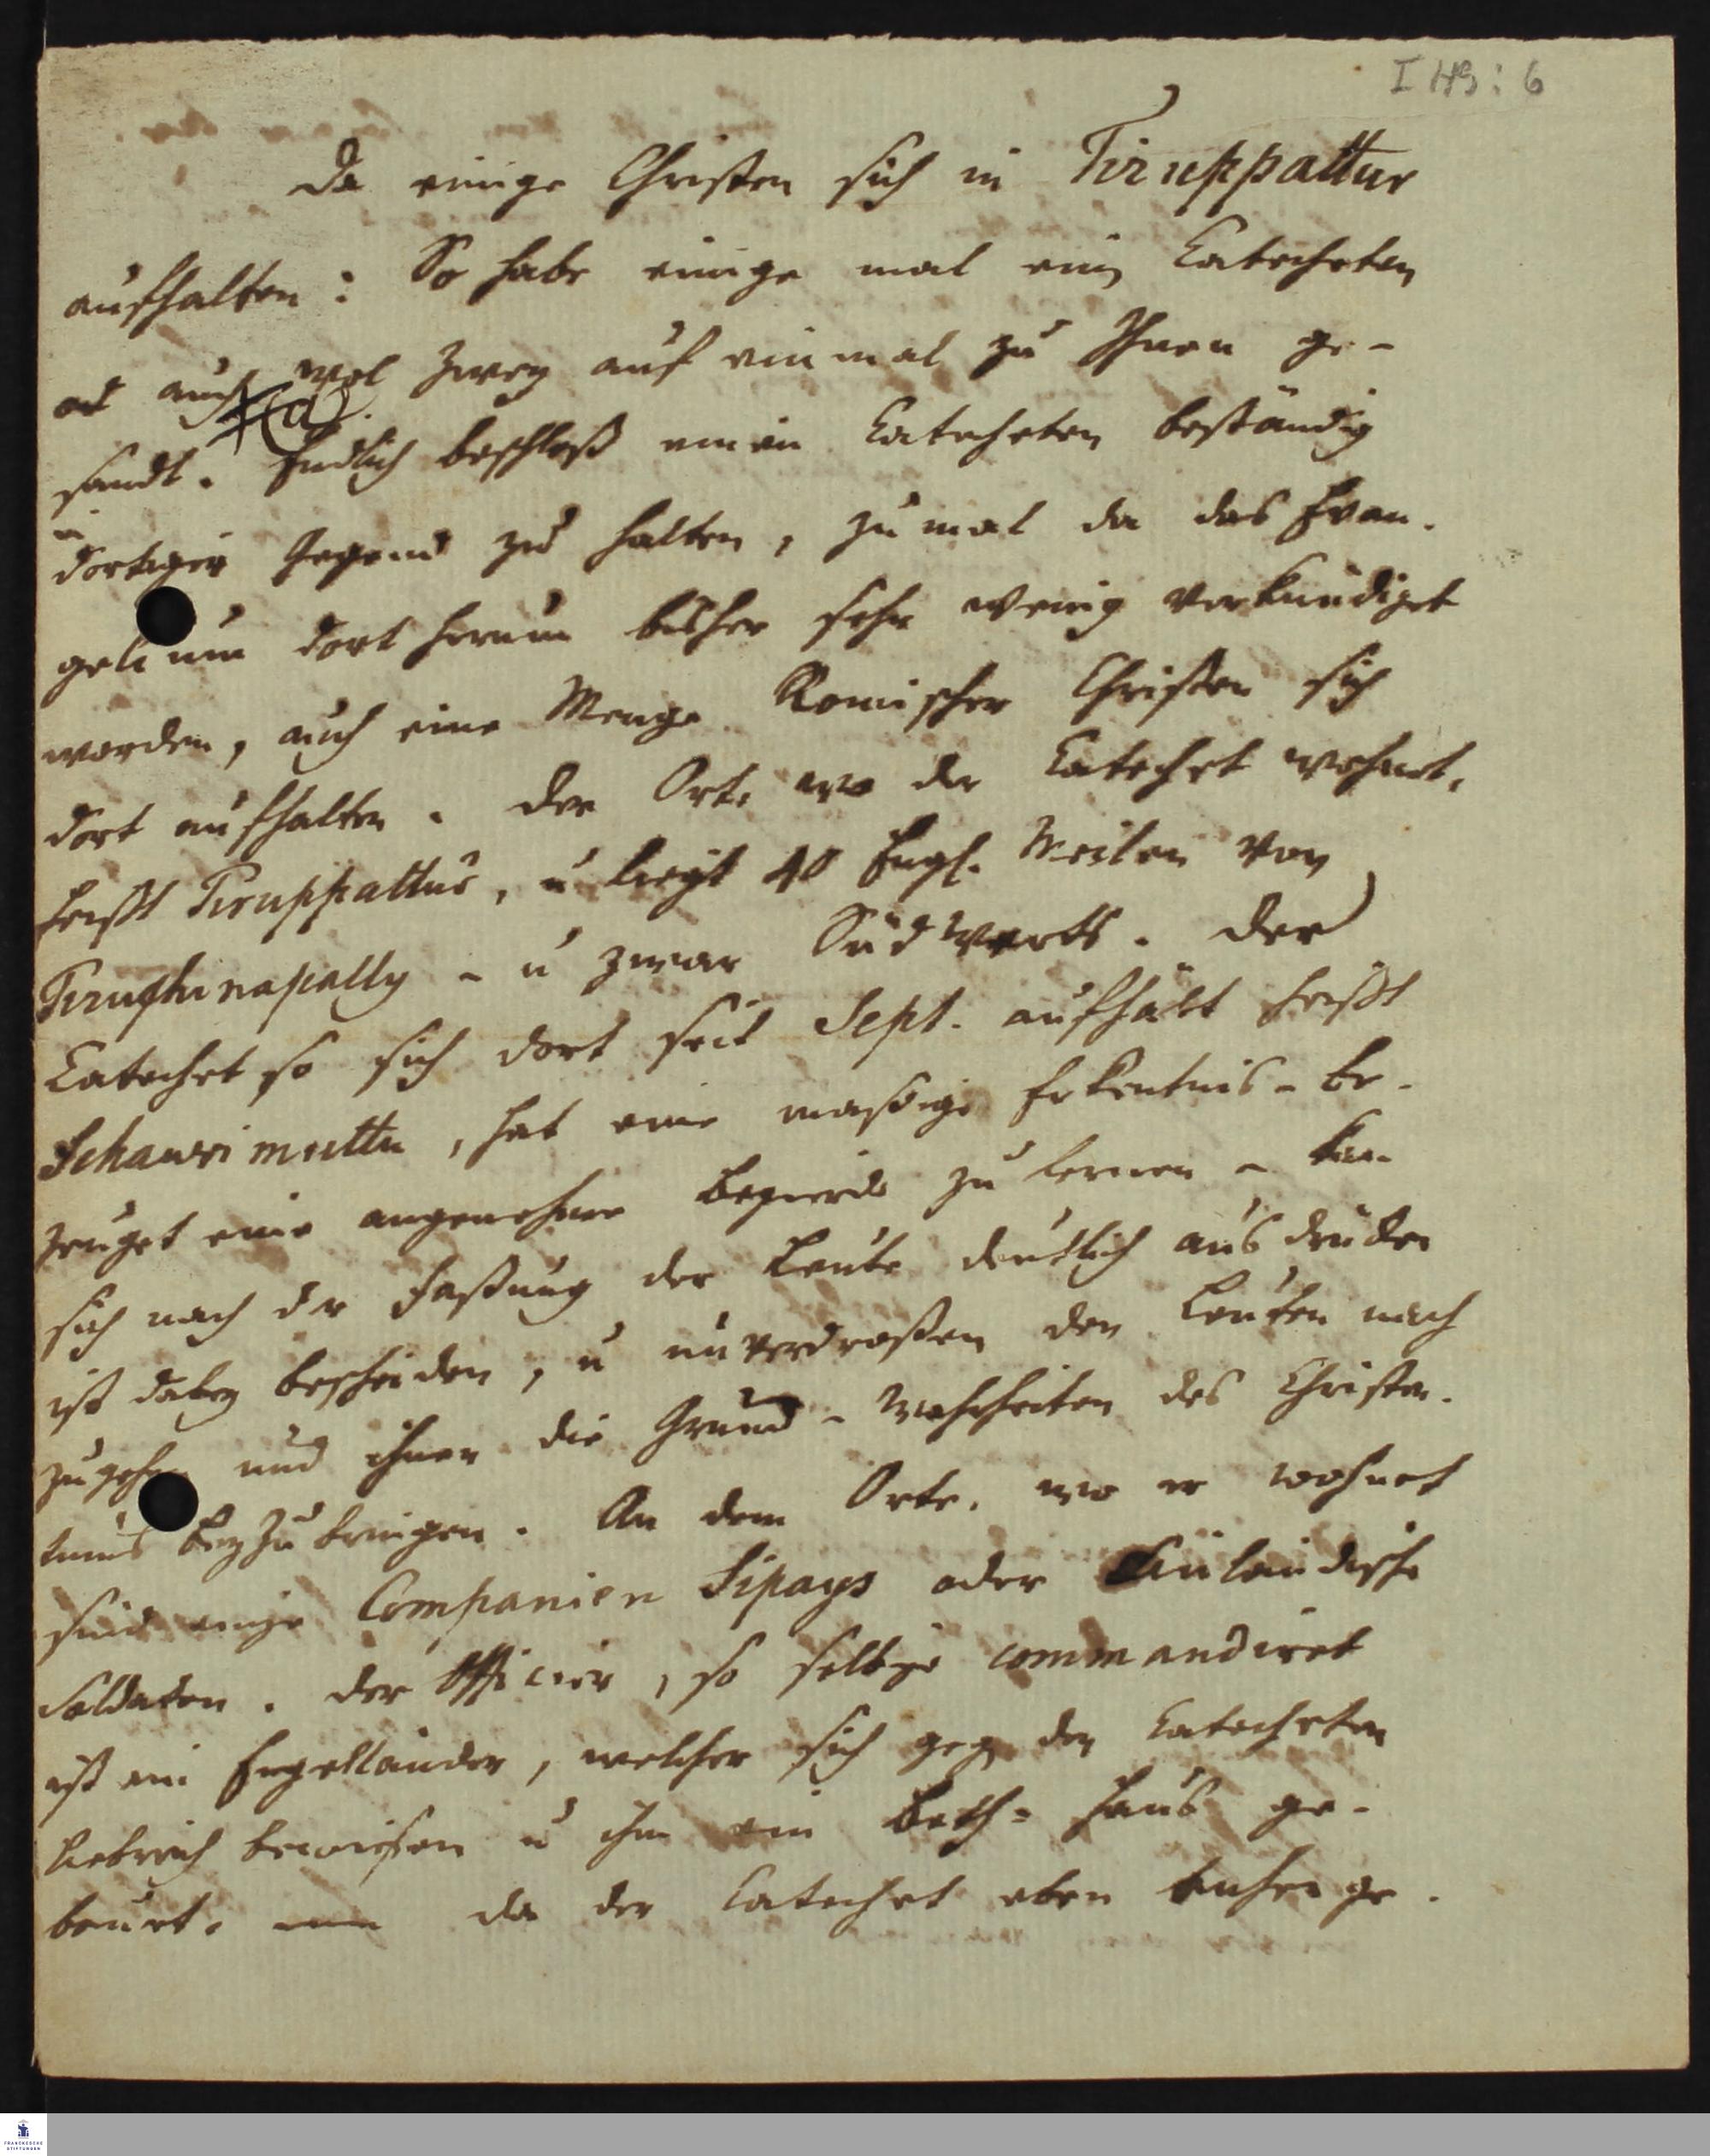 I H9: 6
Da einige Christen sich in Tiruppattur
aufhalten: So habe einige mal ein Catecheten
od auch wol zwey auf einmal zu Ihnen ge-
sandt. Endlich beschloß einen Catecheten beständig
in
dortiger Gegend zu halten, zumal da das Evan-
gelium dort herum bisher sehr wenig verkündiget
worden, auch eine Menge Römischer Christen sich
dort aufhalten. Der Ort, wo der Catechet wohnet,
heißt Tiruppattur, u liegt 40 Engl. Meilen von
Tirutschinapally - u zwar Südwerts. Der
Catechet so sich dort seit Sept. aufhält heißt
Schawrimuttu, hat eine mäßige Erkentnis - be-
zeuget eine angenehme Begierde zu lernen - kan
sich nach der Faßung der Leute deutlich ausdrücken
ist dabey bescheiden, u unverdroßen den Leuten nach
zugehen und ihnen die Grund-Wahrheiten des Christen-
tums beyzubringen. An dem Orte, wo er wohnet
sind einige Companien Sipays oder Einländische
Soldaten. Der Officier, so selbige commandiret
ist ein Engelländer, welcher sich geg den Catecheten
liebreich bewiesen u ihm ein Beth-Haus ge-
bauet. da der Catechet eben ge-
FRANCKESCHE
STIFTUNGEN